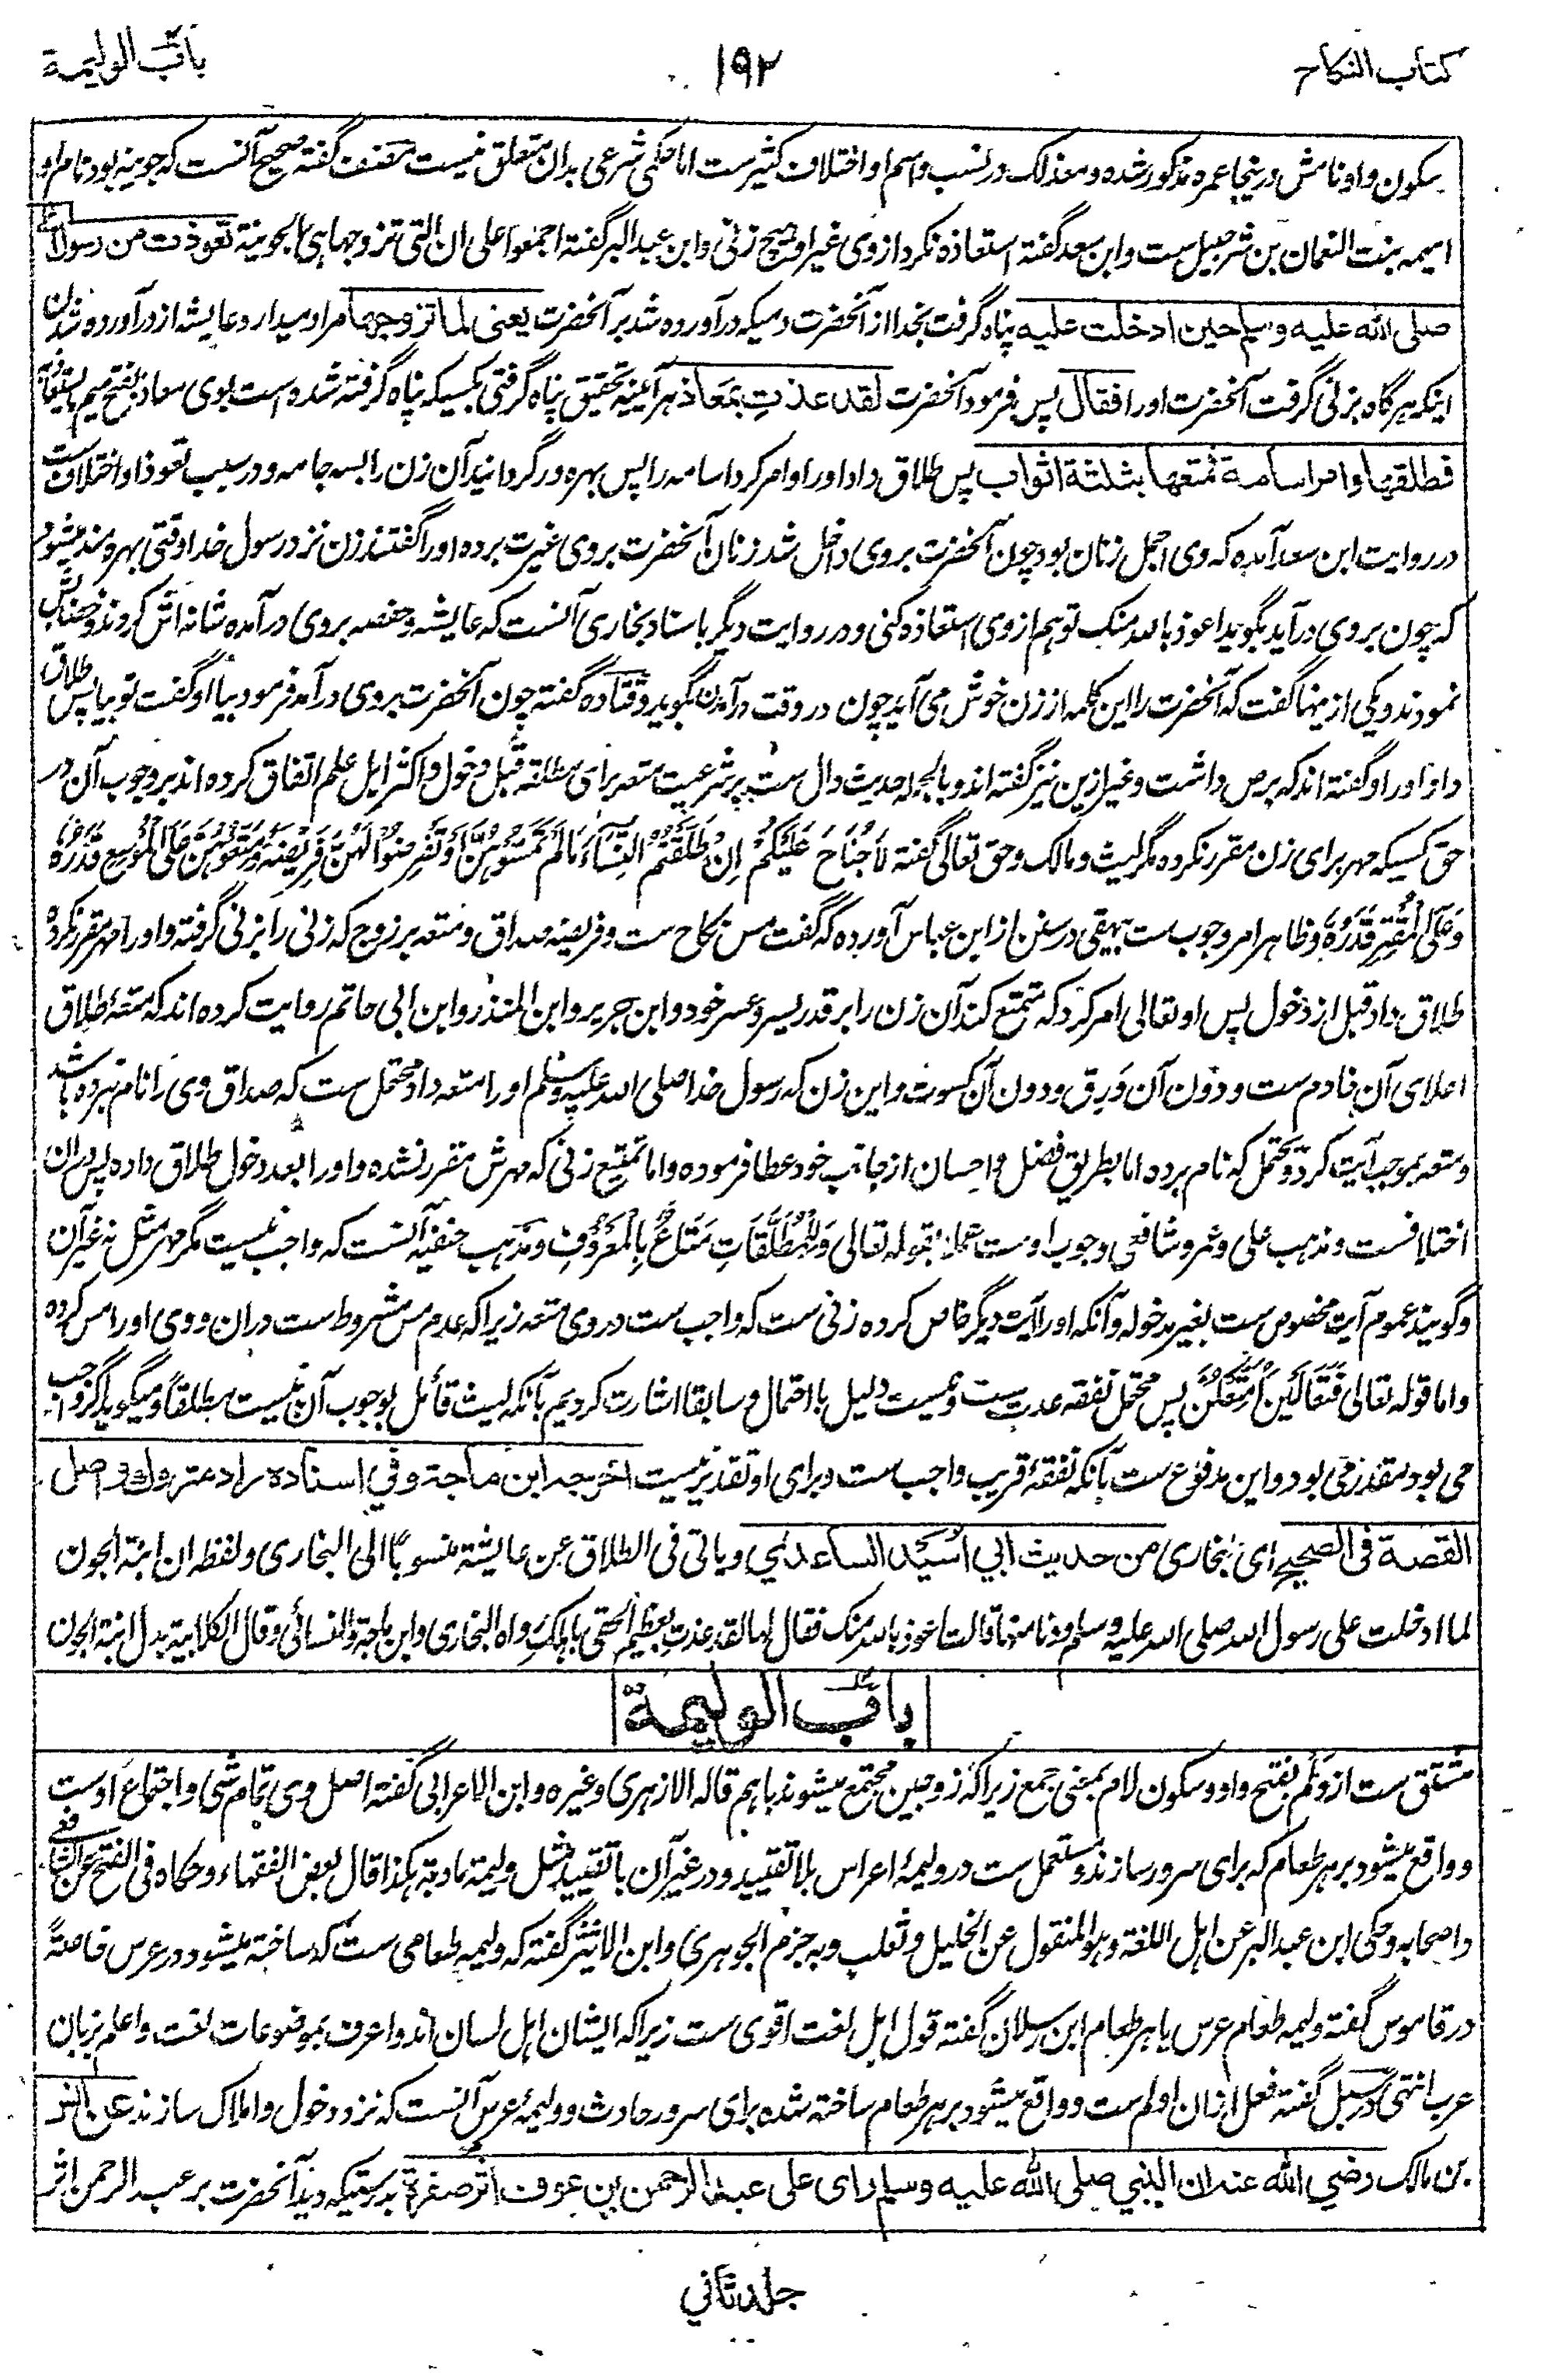 كتاب النكاح
۱۹۲
باب الوليمة
سکون واو نامش درینجا عمره مذکور شده و معذلک در نسب و اسم او اختلاف کثیرست اما حکمی شرعی بدان متعلق نیست مصنف گفته صحیح آنست که جوینه بود نام او
اسیمه بنت النعمان بن شرحبیل ست و ابن سعد گفته استعاذه نکرد از وی غیر او هیچ زنی و ابن عبد البر گفته اجمعوا علی ان التی تزوجها هی الجونیة تعوذت من رسول الله
صلى الله عليه وسلم حين ادخلت عليه پناه گرفت بخدا از آنحضرت دمیکه درآورده شد بر آنحضرت یعنی لما تزوجها مراد میدارد عایشه از درآورده شدن
اینکه هرگاه بزنی گرفت آنحضرت او را فقال پس فرمود آنحضرت لقد عذت بمعاذ هرآئینه تحقیق پناه گرفتی بکسیکه پناه گرفته شده است بوی معاذ بفتح میم
فطلقها وامر اسامة فمتعها بثلثة اثواب پس طلاق داد او را و امر کرد اسامه را پس بهره ور گردانید آن زن را بسه جامه و در سبب تعوذ او اختلاف ست
در روایت ابن سعد آمده که وی اجمل زنان بود چون آنحضرت بروی داخل شد زنان آنحضرت بروی غیرت برده او را گفتند زن نزد رسول خدا وقتی بهره مند میشود
که چون بروی درآید بگوید اعوذ بالله منک تو هم از وی استعاذه کنی و در روایت دیگر باسناد بخاری آنست که عایشه و حفصه بروی درآمده شانه اش کردند و خضابش
نمودند و یکی ازینها گفت که آنحضرت را این کلمه از زن خوش می آید چون در وقت درآمدن بگوید و قتاده گفته چون آنحضرت بروی درآمد فرمود بیا او گفت تو بیا پس طلاق
داد او را و گفته اند که برص داشت و غیر ازین نیز گفته اند و بالجمله حدیث دال ست بر شرعیت متعه برای مطلقه قبل دخول و اکثر اهل علم اتفاق کرده اند بر وجوب آن در
حق کسیکه مهر برای زن مقرر نکرده مگر لیث و مالک و حق تعالی گفته لَا جُنَاحَ عَلَيْكُمْ اِنْ طَلَّقْتُمُ النِّسَآءَ مَا لَمْ تَمَسُّوْهُنَّ اَوْ تَفْرِضُوْا لَهُنَّ فَرِيْضَةً وَّمَتِّعُوْهُنَّ عَلَى الْمُوْسِعِ قَدَرُهٗ
وَعَلَى الْمُقْتِرِ قَدَرُهٗ و ظاهر امر وجوب ست بیهقی در سنن از ابن عباس آورده که گفت مس نکاح ست و فریضه صداق و متعه بر زوج که زنی را بزنی گرفته و او را مهر مقرر نکرده
طلاق داد قبل از دخول پس او تعالی امر کرد که تمتع کند آن زن را بر قدر یسر و عسر خود و ابن جریر و ابن المنذر و ابن ابی حاتم روایت کرده اند که متعۀ طلاق
اعلای آن خادم ست و دون آن ورق و دون آن کسوت و این زن که رسول خدا صلی الله علیه وسلم او را متعه داد محتمل ست که صداق وی را نام نبرده باشد
و متعه بموجب آیت کرد و محتمل که نام برده اما بطریق فضل و احسان از جانب خود عطا فرموده و اما تمتیع زنی که مهرش مقرر نشده و او را بعد دخول طلاق داده پس دران
اختلافست و مذهب علی و عمر و شافعی وجوب اوست عملا بقوله تعالی وَلِلْمُطَلَّقَاتِ مَتَاعٌ بِالْمَعْرُوفِ و مذهب حنفیه آنست که واجب نیست مگر مهر مثل نه غیر آن
و گویند عموم آیت مخصوص ست بغیر مدخوله و آنکه او را آیت دیگر خاص کرده زنی ست که واجب ست در وی متعه زیرا که عدم مس مشروط ست دران و وی او را مس کرده
و اما قوله تعالی فَتَعَالَيْنَ اُمَتِّعْكُنَّ پس محتمل نفقه عدت ست و نیست دلیل با احتمال و سابقا اشارت کردیم بآنکه لیث قائل بوجوب آن نیست مطلقا و میگوید اگر واجب
می بود مقدر می بود و این مدفوع ست بآنکه نفقۀ قریب واجب ست و برای او تقدیر نیست اخرجه ابن ماجة وفي اسناده راو متروك واصل
القصة في الصحيح ای بخاری من حديث ابي اُسَيْد الساعدي و یاتی فی الطلاق عن عایشة منسوبًا الی البخاری و لفظه ان ابنة الجون
لما ادخلت علی رسول الله صلی الله علیه وسلم و دنا منها قالت اعوذ بالله منک فقال لها لقد عذت بعظیم الحقی باهلک رواه البخاری و ابن ماجة و النسائی و قال الکلابیة بدل ابنة الجون
باب الوليمة
مشتق ست از ولم بفتح واو و سکون لام بمعنی جمع زیرا که زوجین مجتمع میشوند باهم قاله الازهری و غیره و ابن الاعرابی گفته اصل وی تمام شی و اجتماع اوست
و واقع میشود بر هر طعام که برای سرور سازند و مستعمل ست در ولیمۀ اعراس بلا تقیید و در غیر آن با تقیید مثل ولیمة مادبة هکذا قال بعض الفقهاء و حکاه فی الفتح عن الشافعی
و اصحابه و حکی ابن عبد البر عن اهل اللغة و هو المنقول عن الخلیل و ثعلب و به جزم الجوهری و ابن الاثیر گفته که ولیمه طعامی ست که ساخته میشود در عرس خاصةً
در قاموس گفته ولیمه طعام عرس یا هر طعام ابن رسلان گفته قول اهل لغت اقوی ست زیرا که ایشان اهل لسان اند و اعرف بموضوعات لغت و اعلم بزبان
عرب انتهی در سبل گفته فعل ازان اولم ست و واقع میشود بر هر طعام ساخته شده برای سرور حادث و ولیمۀ عرس آنست که نزد دخول و املاک سازند عن انس
بن مالك رضي الله عنه ان النبي صلى الله عليه وسلم راى على عبد الرحمن بن عوف اثر صفرة بدرستیکه دید آنحضرت بر عبد الرحمن اثر
جلد ثاني